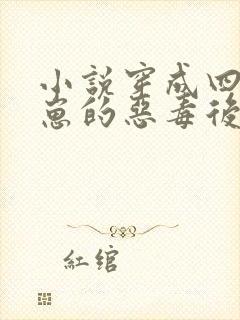 小說穿成四
崽的惡毒後
紅綰